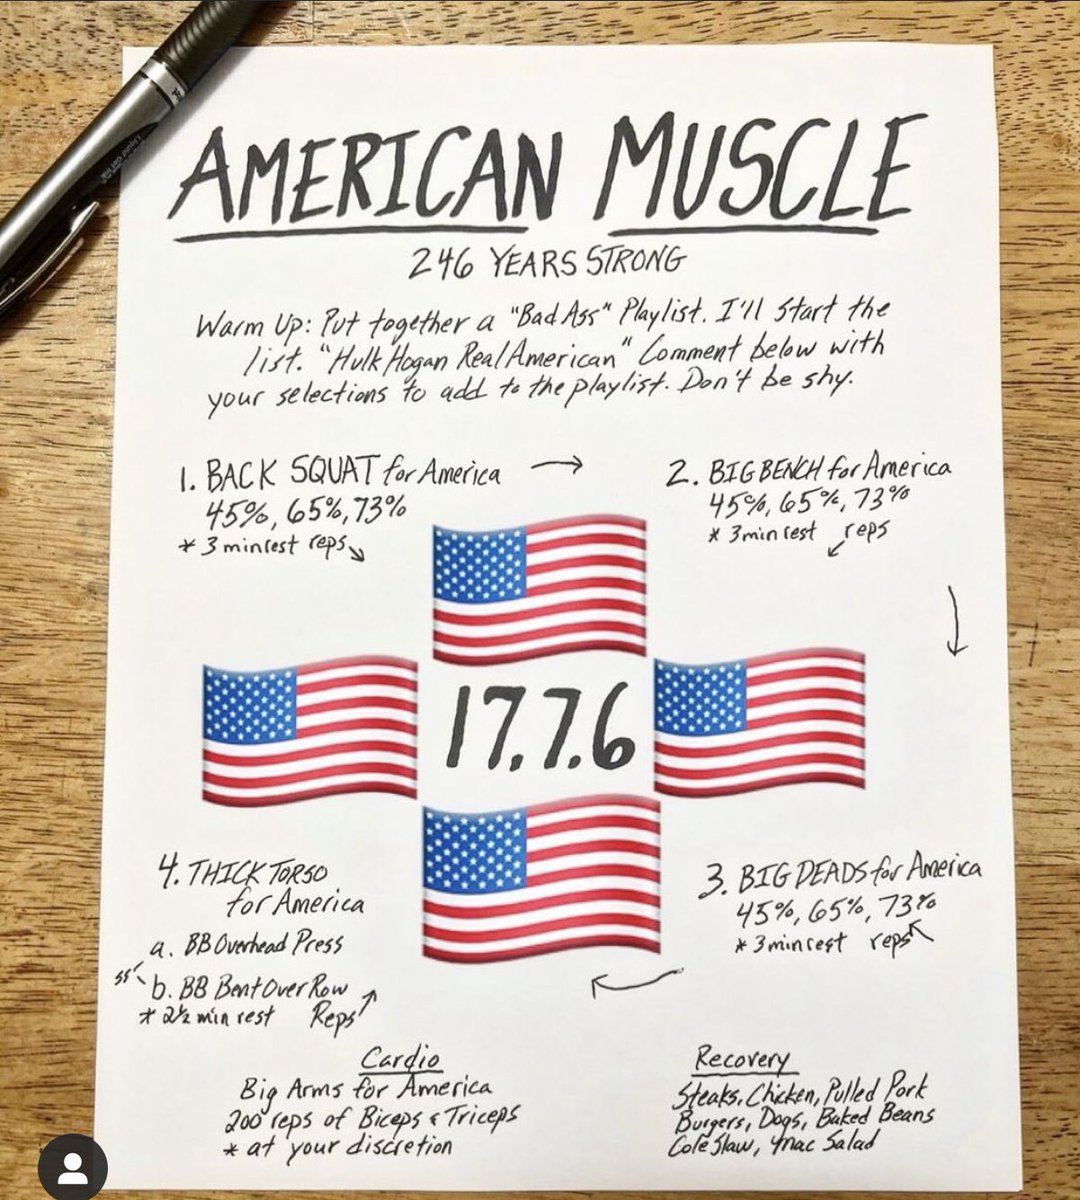 AMERICAN MUSCLE
246 YEARS STRONG
Warm Up: Put together a "Bad Ass" Playlist. I'll start the
list. "Hulk Hogan Real American" Comment below with
your selections to add to the playlist. Don't be shy.
1. BACK SQUAT for America →
45%, 65%, 73%
* 3 min rest reps ↘
2. BIG BENCH for America
45%, 65%, 73%
* 3 min rest reps ↙
↓
17.7.6
3. BIG DEADS for America
45%, 65%, 73%
* 3 min rest reps ↖
←
4. THICK TORSO
for America
a. BB Overhead Press
ss
b. BB Bent Over Row
* 2½ min rest Reps ↗
Cardio
Big Arms for America
200 reps of Biceps & Triceps
* at your discretion
Recovery
Steaks, Chicken, Pulled Pork
Burgers, Dogs, Baked Beans
Cole Slaw, Mac Salad